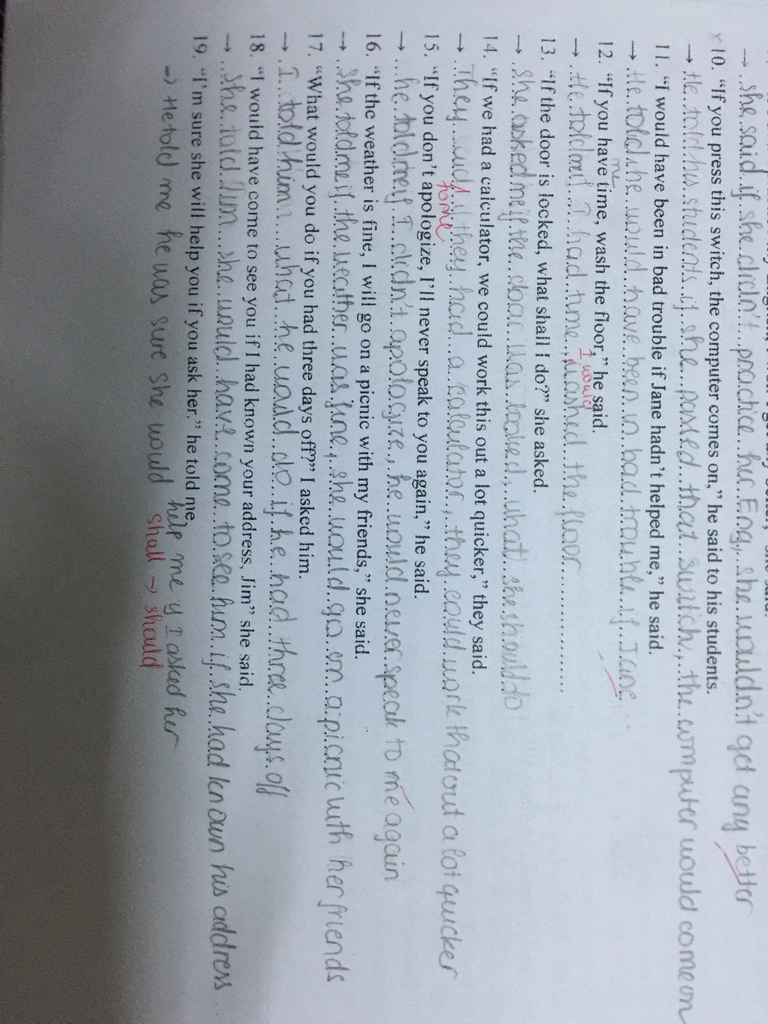 → she said if she didn't practice her Eng, she wouldn't get any better
x 10. “If you press this switch, the computer comes on,” he said to his students.
→ He told his students if she that switch, the computer would come on
11. “I would have been in bad trouble if Jane hadn't helped me,” he said.
→ He told she would have been in bad trouble if Jane
12. “If you have time, wash the floor,” he said.
me I would
→ He told me if I had time washed the floor
13. “If the door is locked, what shall I do?” she asked.
→ she asked me if the door was locked, what she should do
14. “If we had a calculator, we could work this out a lot quicker,” they said.
→ They if they had a calculator, they could work that out a lot quicker
to me
15. “If you don't apologize, I'll never speak to you again,” he said.
→ he told me if I didn't apologize, he would never speak to me again
16. “If the weather is fine, I will go on a picnic with my friends,” she said.
→ she told me if the weather was fine, she would go on a picnic with her friends
17. “What would you do if you had three days off?” I asked him.
→ I told him what he would do if he had three days off
18. “I would have come to see you if I had known your address, Jim” she said
→ she told Jim she would have come to see him if she had known his address
19. “I'm sure she will help you if you ask her.” he told me.
→ He told me he was sure she would help me if I asked her
shall → should